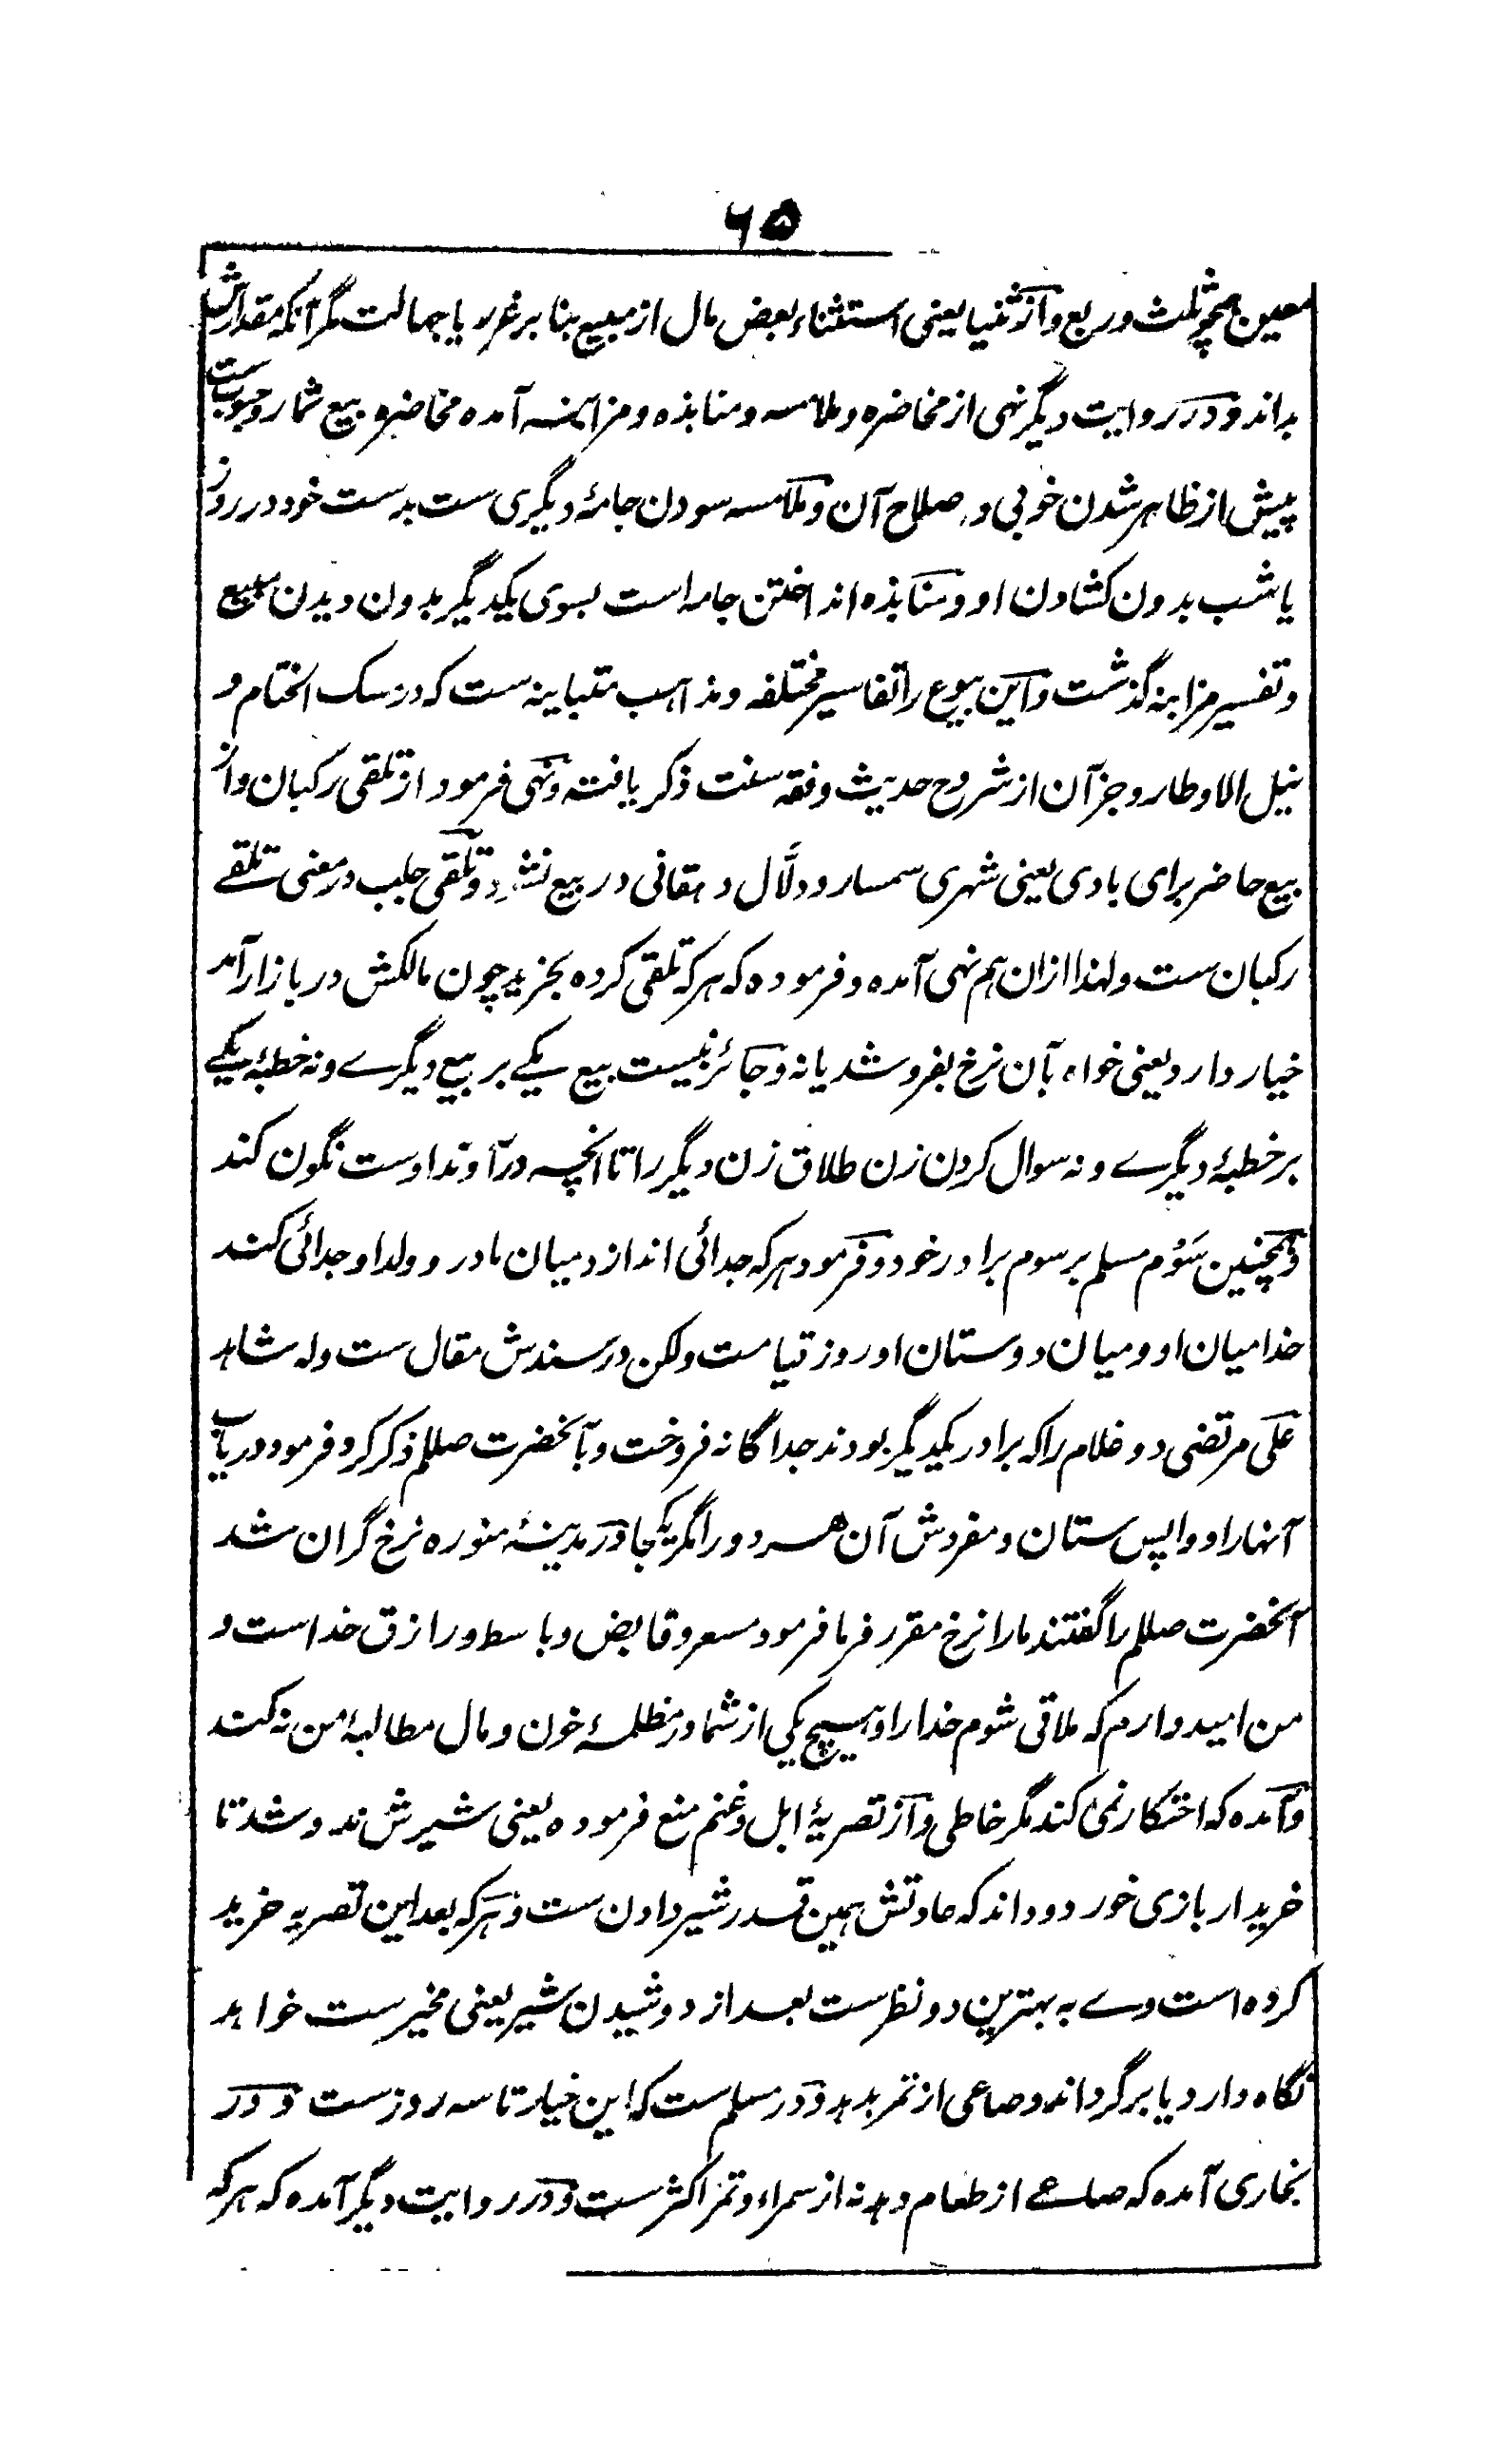 ۶۵
معین همچو ثلث و ربع و از ثنیا یعنی استثناء بعض مال از مبیع بنا بر غرر یا جهالت مگر آنکه مقدارش
بداند و در روایت دیگر نهی از مخاضره و ملامسه و منابذه و مزابنه آمده مخاضره بیع ثمار و حبوب ست
پیش از ظاهر شدن خوبی و صلاح آن و ملامسه سودن جامۀ دیگری ست بدست خود در روز
یا شب بدون کشادن او و منابذه انداختن جامه است بسوی یکدیگر بدون دیدن مبیع
و تفسیر مزابنه گذشت و این بیوع را تفاسیر مختلفه و مذاهب متباینه ست که در مسک الختام و
نیل الاوطار و جز آن از شروح حدیث و فقه سنت ذکر یافته و نهی فرمود از تلقی رکبان و از
بیع حاضر برای بادی یعنی شهری سمسار و دلّال دهقانی در بیع نشود و تلقی جلب در معنی تلقے
رکبان ست و لهذا ازان هم نهی آمده و فرموده که هر که تلقی کرده بخرید چون مالکش در بازار آمد
خیار دارد یعنی خواه بآن نرخ بفروشد یا نه و جائز نیست بیع یکے بر بیع دیگرے و نه خطبۀ یکے
بر خطبۀ دیگرے و نه سوال کردن زن طلاق زن دیگر را تا انچه در آوند اوست نگون کند
و همچنین سَوْم مسلم بر سوم برادر خود و فرمود هر که جدائی اندازد میان مادر و ولد او جدائی کند
خدا میان او و میان دوستان او روز قیامت ولکن در سندش مقال ست وله شاهد
علی مرتضی دو غلام را که برادر یکدیگر بودند جداگانه فروخت و بآنحضرت صللم ذکر کرد فرمود دریاب
آنها را و واپس ستان و مفروش آن هر دو را مگر یکجا و در مدینۀ منوره نرخ گران شد
آنحضرت صللم را گفتند ما را نرخ مقرر فرما فرمود مسعر و قابض و باسط و رازق خداست و
من امیدوارم که ملاقی شوم خدا را و هیچ یکی از شما در مظلمۀ خون و مال مطالبۀ من نه کند
و آمده که احتکار نمی کند مگر خاطی و از تصریۀ ابل و غنم منع فرموده یعنی شیرش ندوشد تا
خریدار بازی خورد و داند که عادتش همین قدر شیر دادن ست و هر که بعد این تصریه خرید
کرده است وے به بهترین دو نظر ست بعد از دوشیدن شیر یعنی مخیر ست خواهد
نگاه دارد یا برگرداند و صاعی از تمر بدهد و در مسلم ست که این خیار تا سه روز ست و در
بخاری آمده که صاعے از طعام دهد نه از سمراء و تمر اکثر ست و در روایت دیگر آمده که هر که